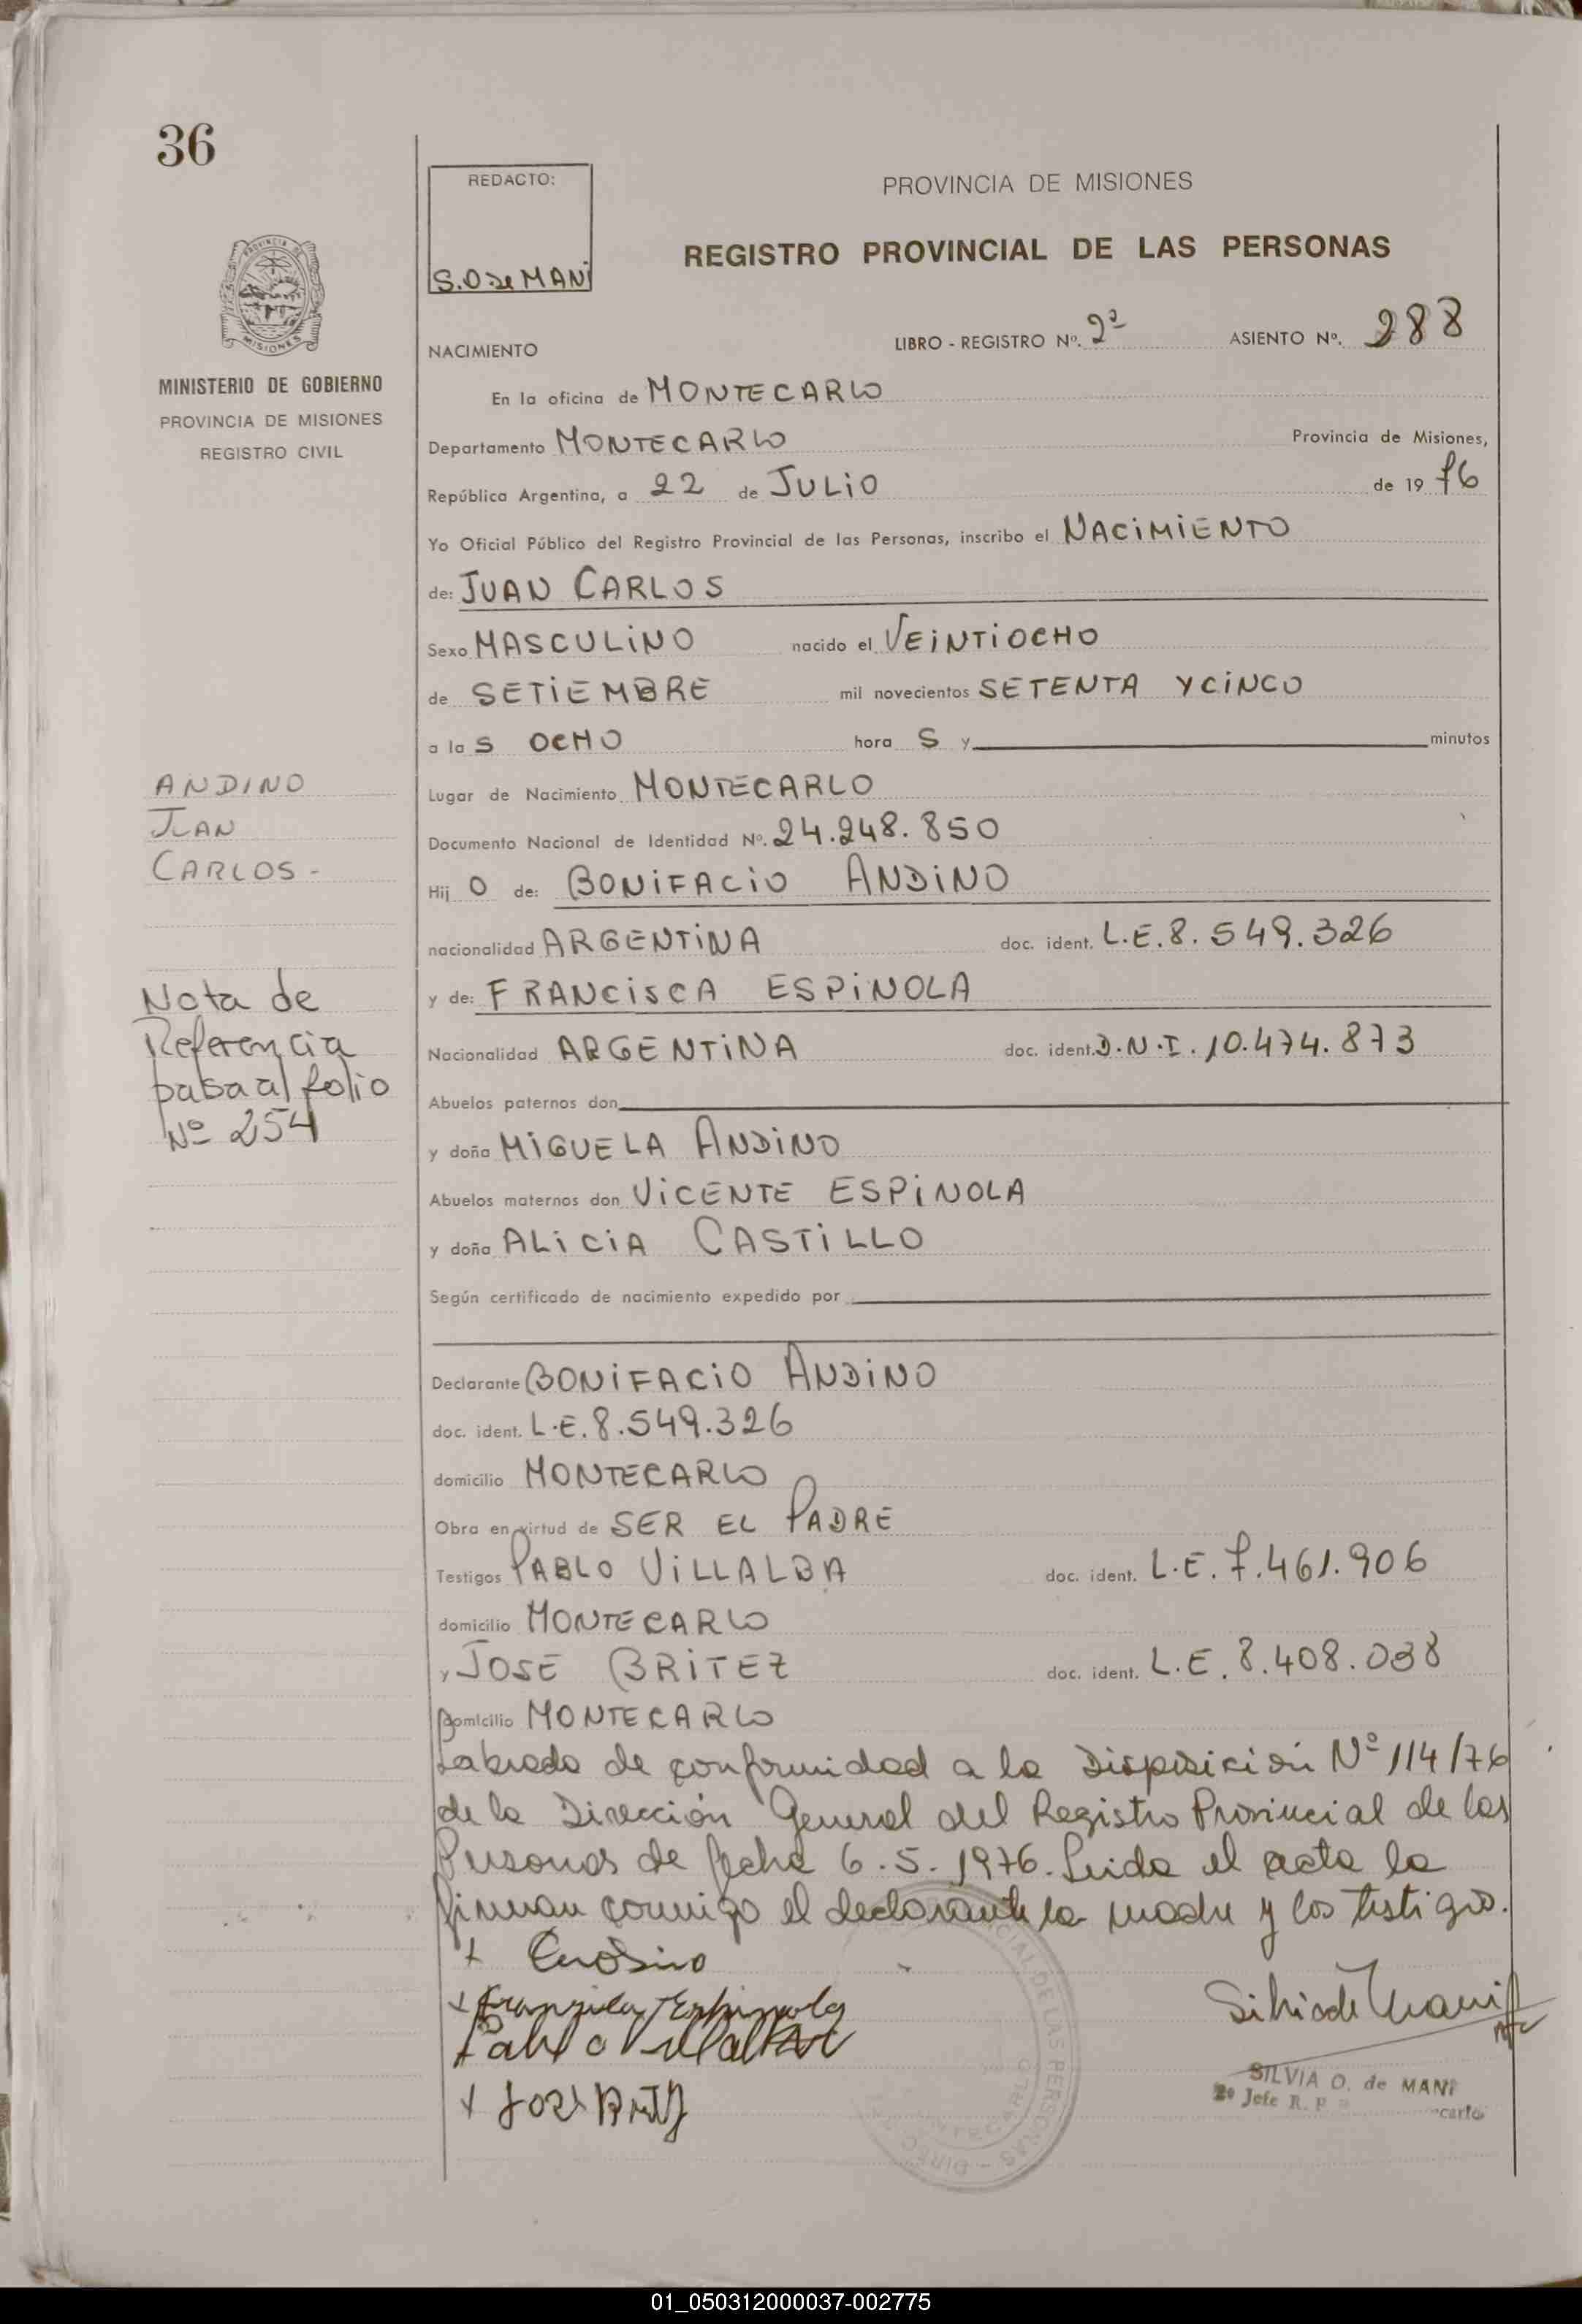 36
REDACTO:
S.O de MANI
PROVINCIA DE MISIONES
REGISTRO PROVINCIAL DE LAS PERSONAS
MISIONES
MINISTERIO DE GOBIERNO
PROVINCIA DE MISIONES
REGISTRO CIVIL
NACIMIENTO LIBRO - REGISTRO Nº. 2º ASIENTO Nº. 288
En la oficina de MONTECARLO
Departamento MONTECARLO Provincia de Misiones,
República Argentina, a 22 de JULIO de 19 76
Yo Oficial Público del Registro Provincial de las Personas, inscribo el NACIMIENTO
de: JUAN CARLOS
Sexo MASCULINO nacido el VEINTIOCHO
de SETIEMBRE mil novecientos SETENTA Y CINCO
a la S OCHO hora S y minutos
Lugar de Nacimiento MONTECARLO
Documento Nacional de Identidad Nº. 24.248.850
Hij O de: BONIFACIO ANDINO
nacionalidad ARGENTINA doc. ident. L.E. 8.549.326
y de: FRANCISCA ESPINOLA
Nacionalidad ARGENTINA doc. ident. D.N.I. 10.474.873
Abuelos paternos don
y doña MIGUELA ANDINO
Abuelos maternos don VICENTE ESPINOLA
y doña ALICIA CASTILLO
Según certificado de nacimiento expedido por
Declarante BONIFACIO ANDINO
doc. ident. L.E. 8.549.326
domicilio MONTECARLO
Obra en virtud de SER EL PADRE
Testigos PABLO VILLALBA doc. ident. L.E. 7.461.906
domicilio MONTECARLO
y JOSE BRITEZ doc. ident. L.E. 8.408.038
domicilio MONTECARLO
Labrada de conformidad a la Disposición Nº 114/76
de la Dirección General del Registro Provincial de las
Personas de fecha 6.5.1976. Leida el acta la
firman conmigo el declarante la madre y los testigos.
ANDINO
JUAN
CARLOS -
Nota de
Referencia
pasa al folio
Nº 254
Francisca Espinola
Pablo Villalba
SILVIA O. de MANI
2º Jefe R. P.